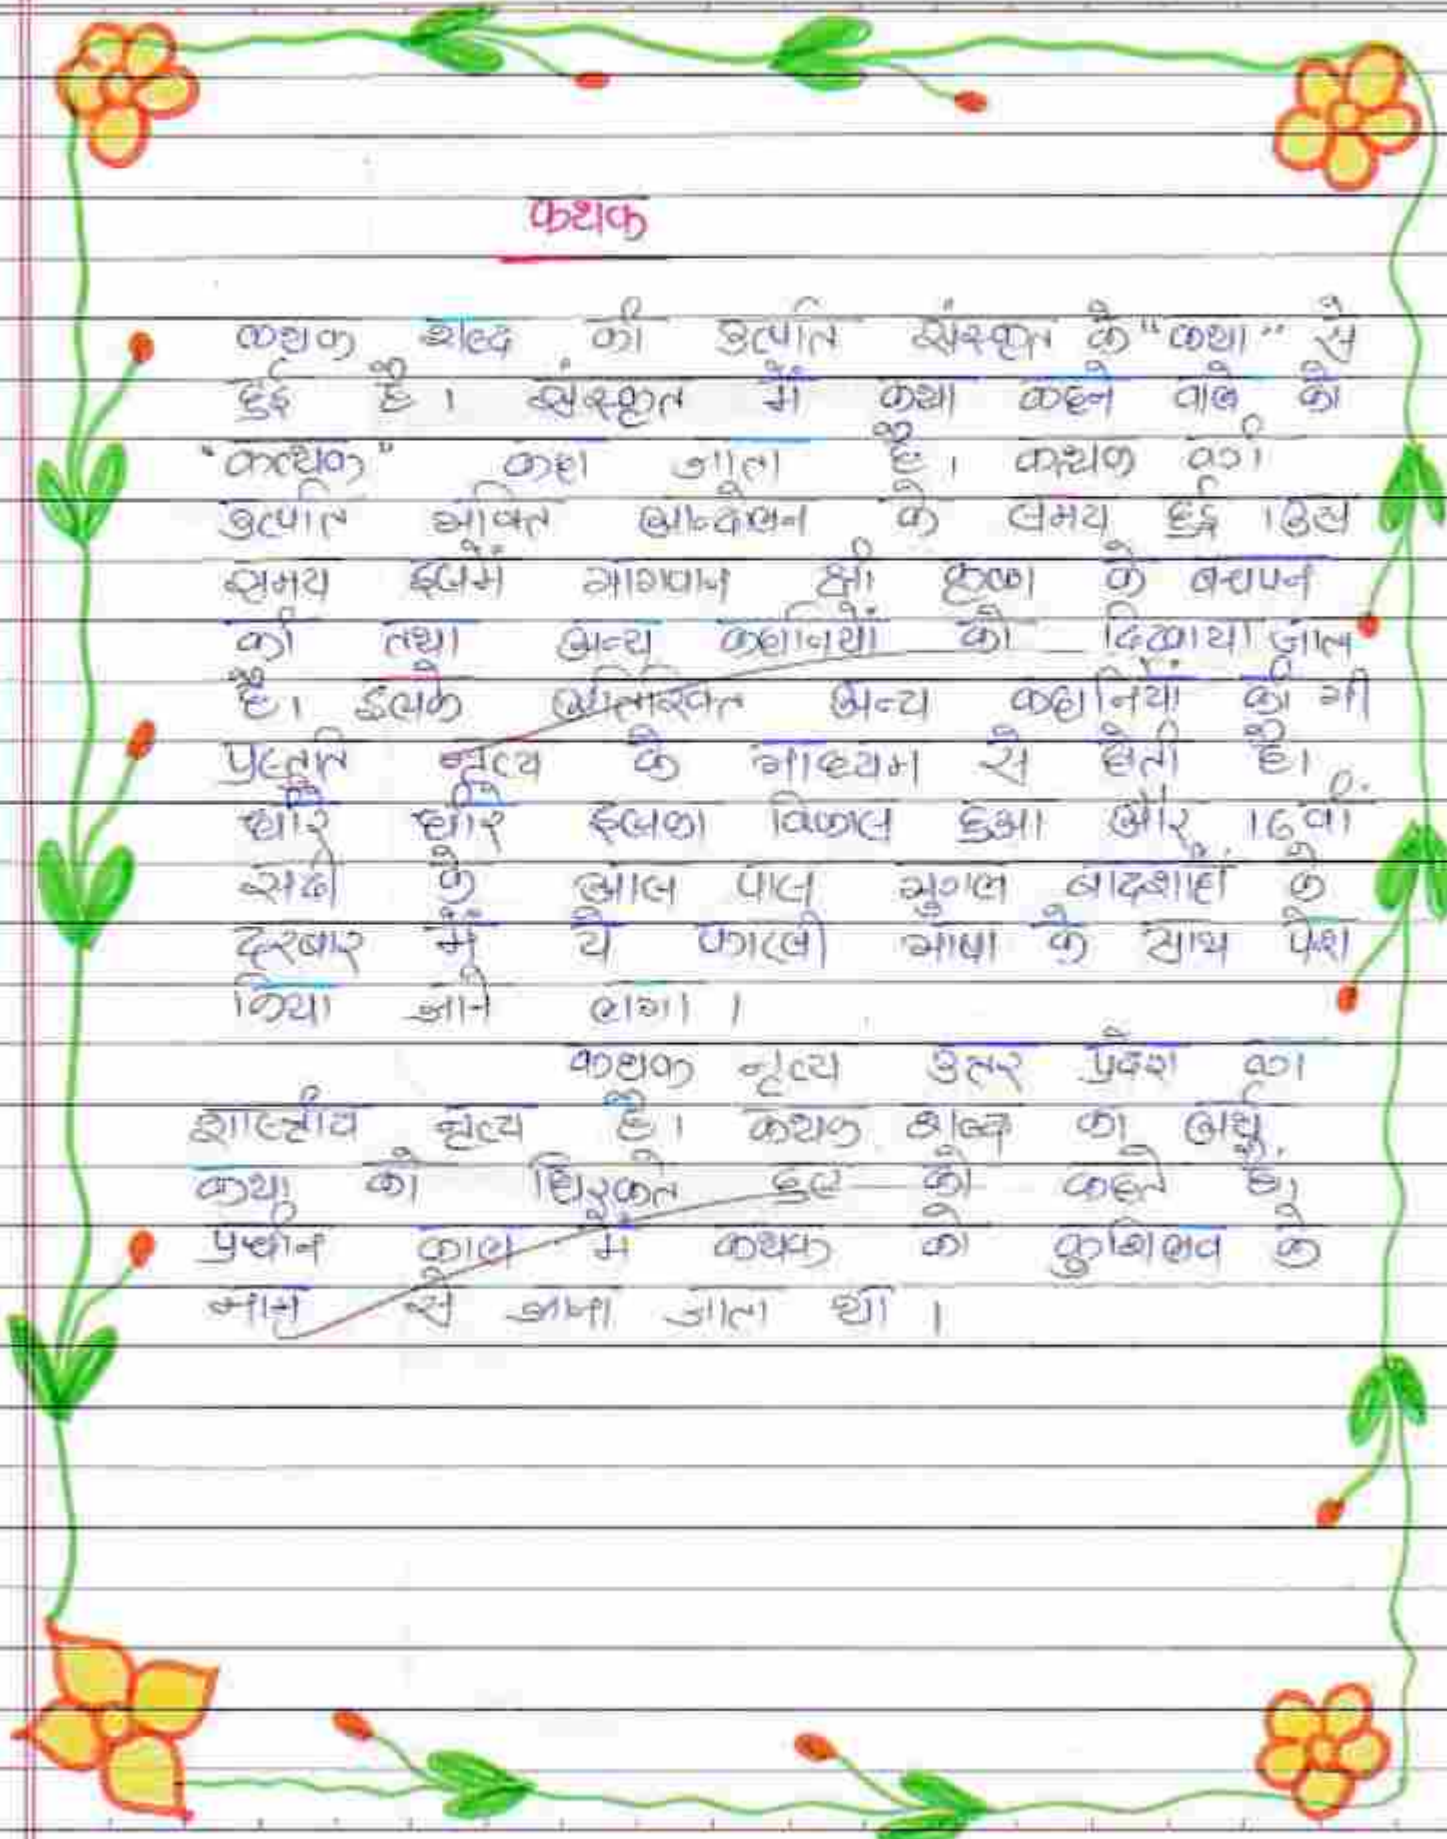 कथक
कथक शब्द की उत्पति संस्कृत के "कथा" से
हुई है। संस्कृत में कथा कहने वाले को
"कत्थक" कहा जाता है। कत्थक की
उत्पति भक्ति आन्दोलन के समय हुई ।उस
समय इसमें भागवान श्री कृष्ण के बचपन
की तथा अन्य कहानियों को दिखाया जाता
है। इसके अतिरिक्त अन्य कहानियों की भी
प्रस्तुति नृत्य के माध्यम से होती है।
धीरे धीरे इसका विकास हुआ और 16वीं
सदी के आस पास मुगल बादशाहों के
दरबार में ये फारसी भाषा के साथ पेश
किया जाने लगा ।
कथक नृत्य उतर प्रदेश का
शास्त्रीय नृत्य है। कथक शब्द का अर्थ
कथा को थिरकते हुए को कहते है।
प्रचीन काल में कथक को कुशिलव के
नाम से जाना जाता था ।